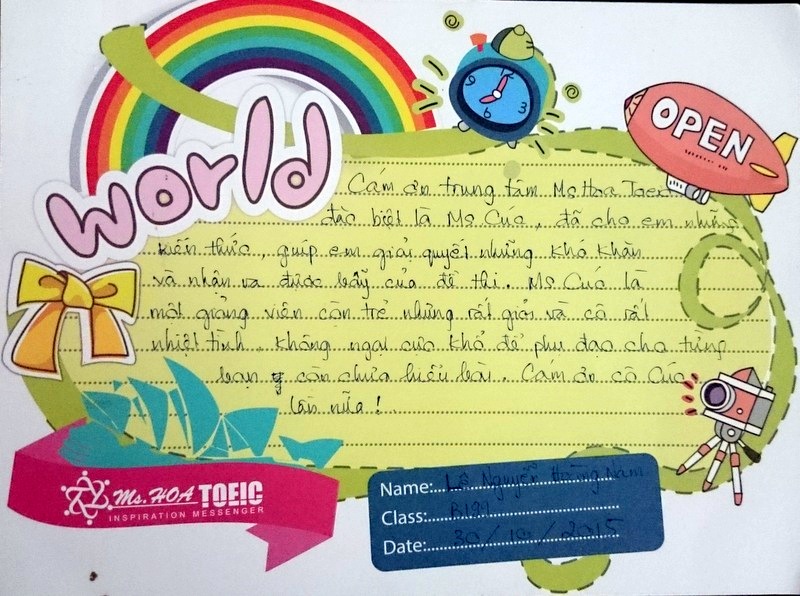 world
12
9
3
6
OPEN
Cám ơn trung tâm Ms Hoa Toeic
đặc biệt là Ms Cúc, đã cho em những
kiến thức, giúp em giải quyết những khó khăn
và nhận ra được bẫy của đề thi. Ms Cúc là
một giảng viên còn trẻ nhưng rất giỏi và cô rất
nhiệt tình, không ngại cực khổ để phụ đạo cho từng
bạn còn chưa hiểu bài. Cám ơn cô Cúc
lần nữa!
Ms. HOA TOEIC
INSPIRATION MESSENGER
Name: Lê Nguyễn Hoàng Nam
Class:
Date: 30/10/2015